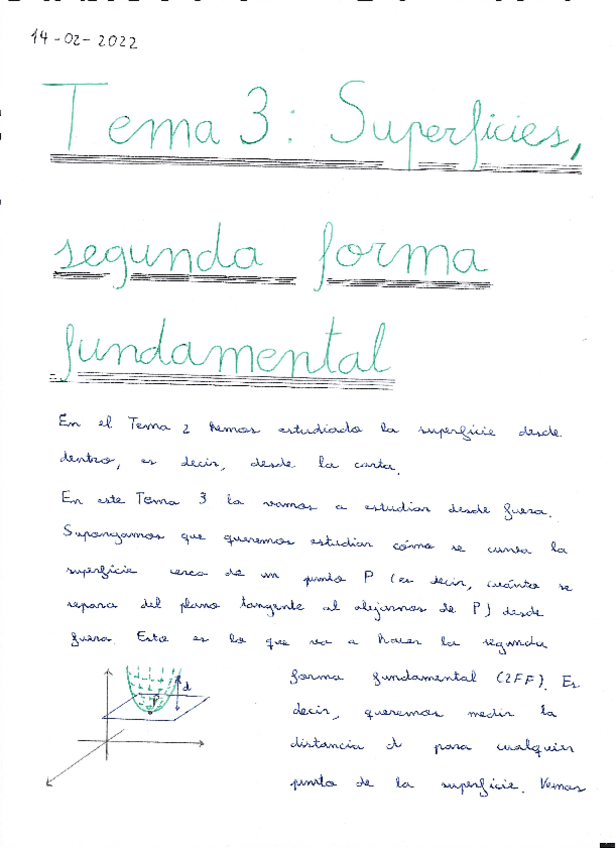 14-02-2022
Tema 3: Superficies,
segunda forma
fundamental
En el Tema 2 hemos estudiado la superficie desde
dentro, es decir, desde la carta.
En este Tema 3 la vamos a estudiar desde fuera.
Supongamos que queremos estudiar cómo se curva la
superficie cerca de un punto P (es decir, cuánto se
separa del plano tangente al alejarnos de P) desde
fuera. Esto es lo que va a hacer la segunda
forma fundamental (2FF). Es
decir, queremos medir la
distancia d para cualquier
punto de la superficie. Vemos
P
d